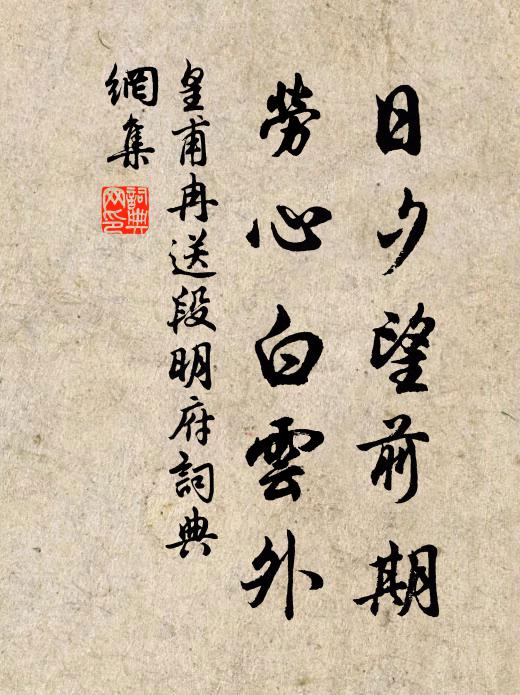 日夕望前期
勞心白雲外
皇甫冉送段明府詞典
網集
詞典網印